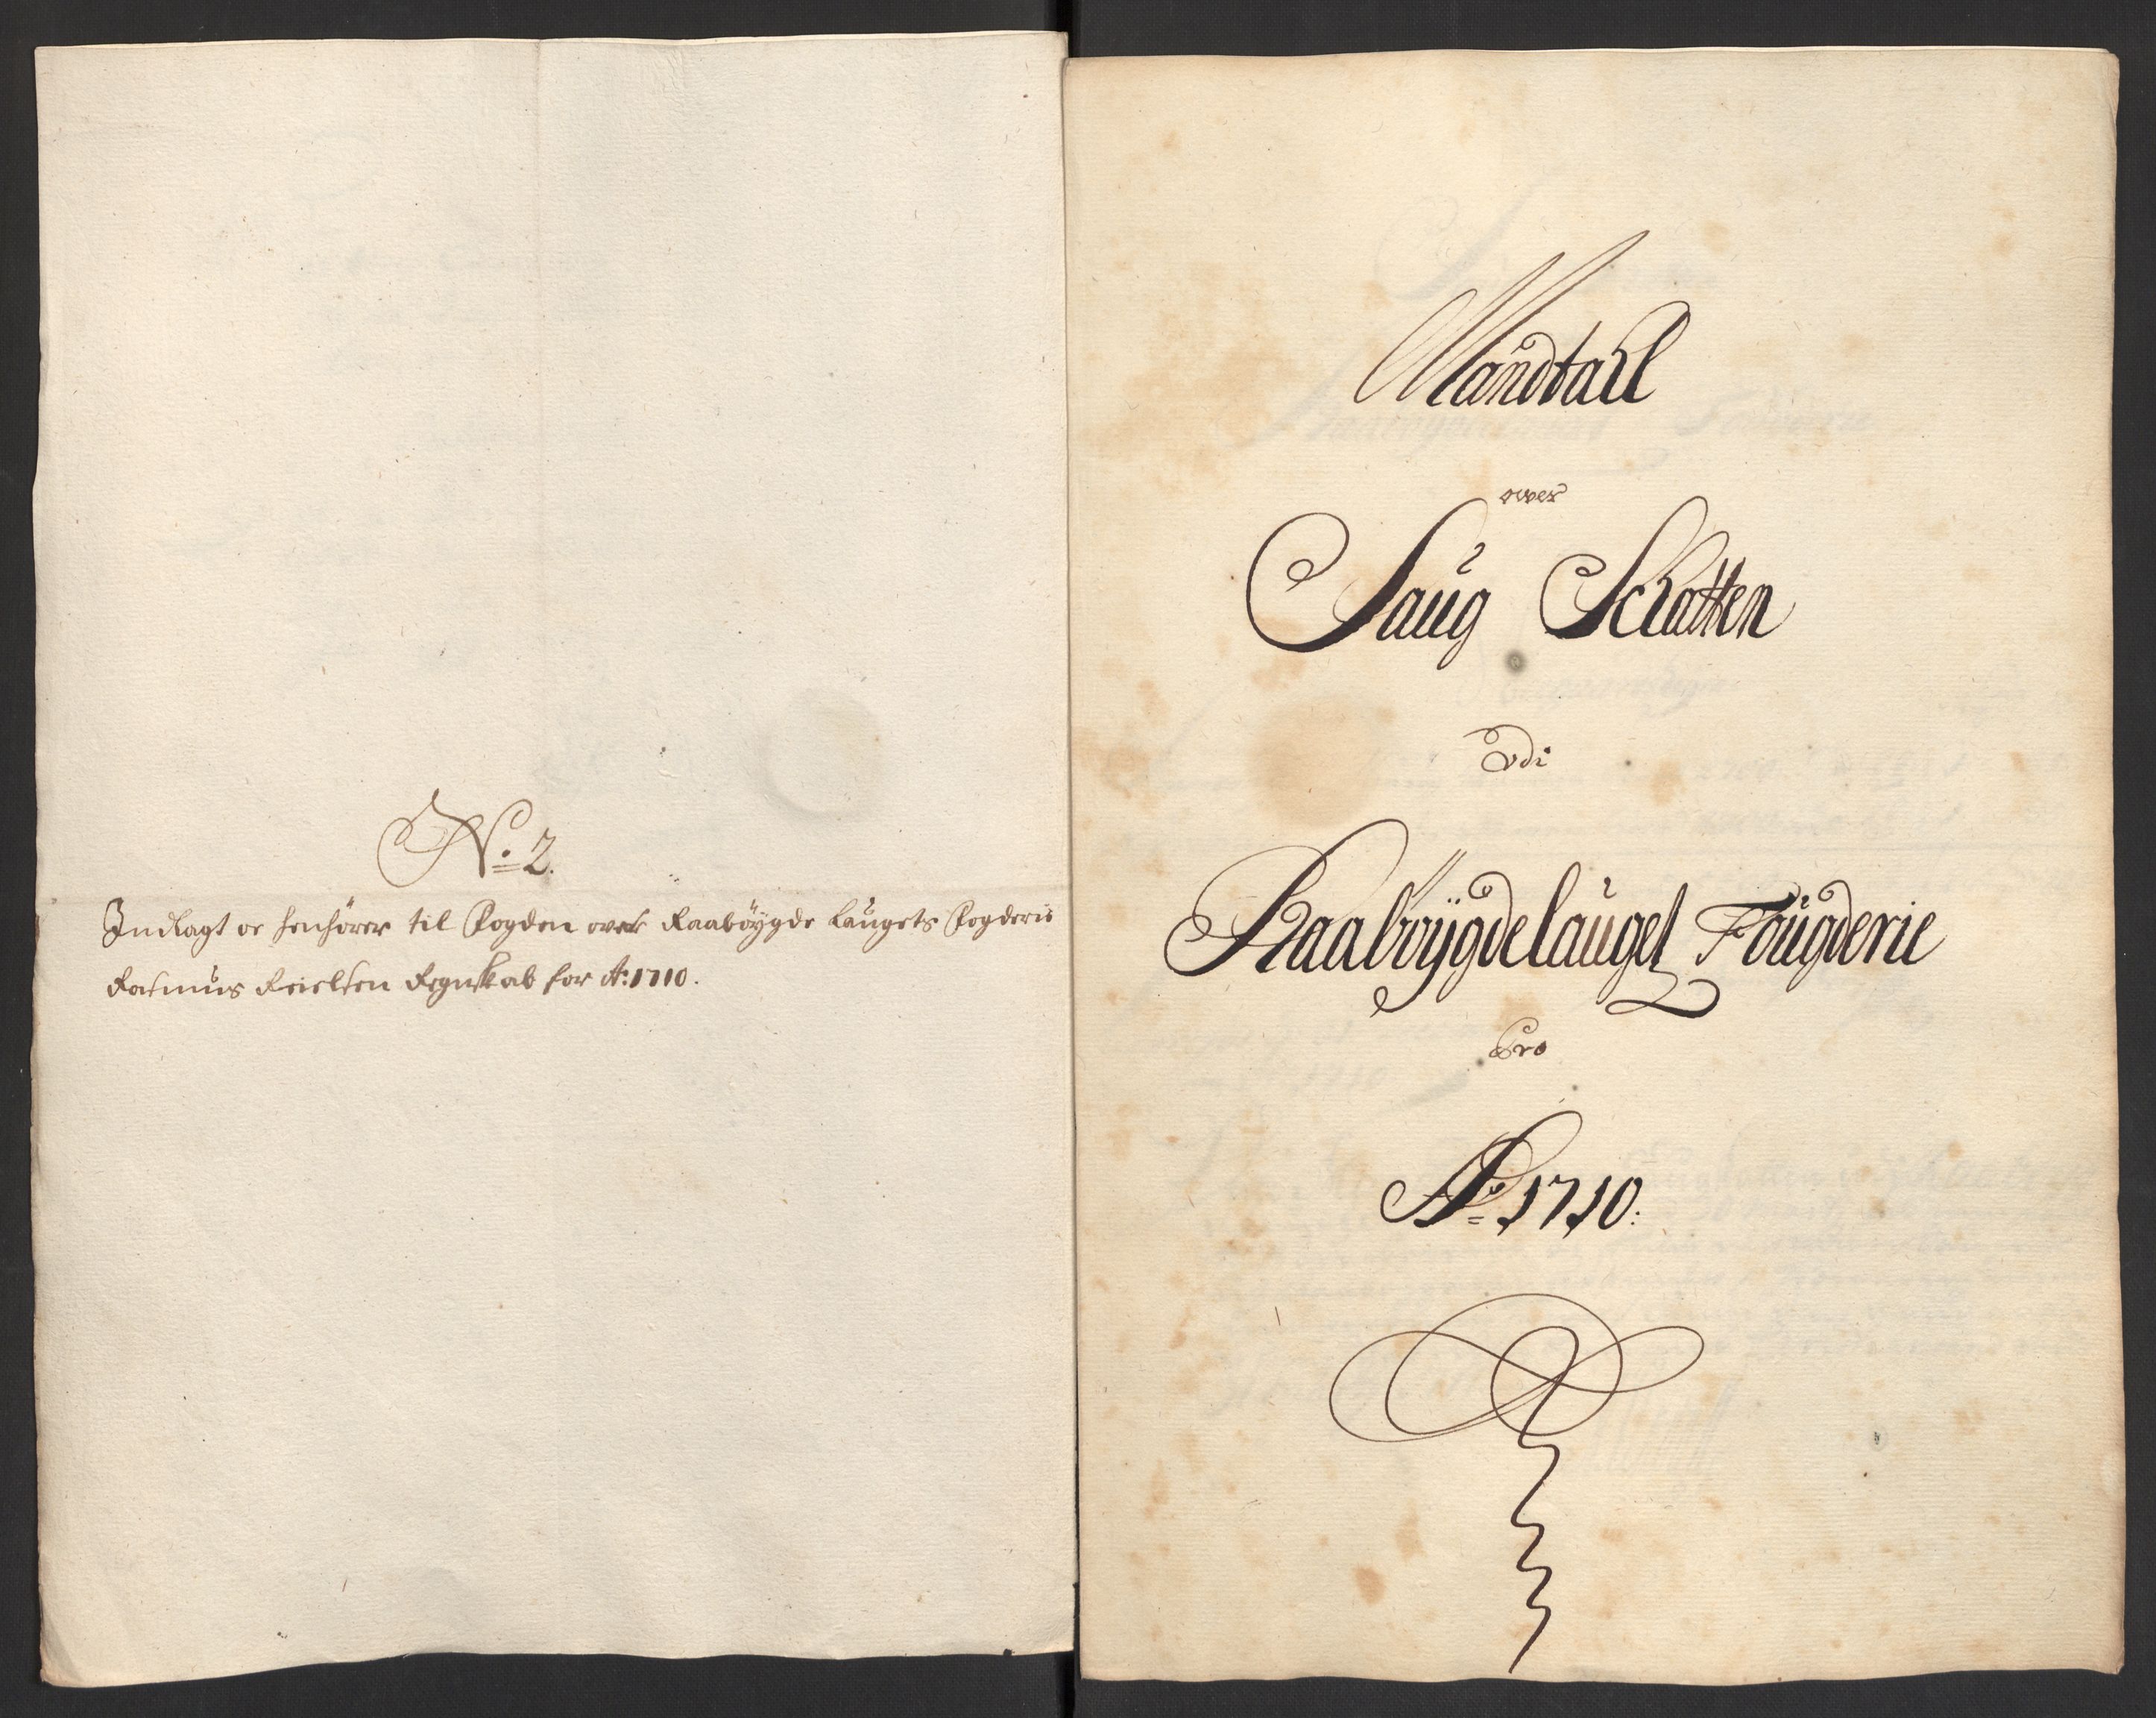 No. 2.
Indlagt oc henhörer til Fogden over Raabøygde Laugets Fogderie
Rasmus Nielsen Regnskab for Ao. 1710.
Mandtall
over
Saug Schatten
Udi
Raabøygdelauget Fougderie
Pro
Ao. 1710: